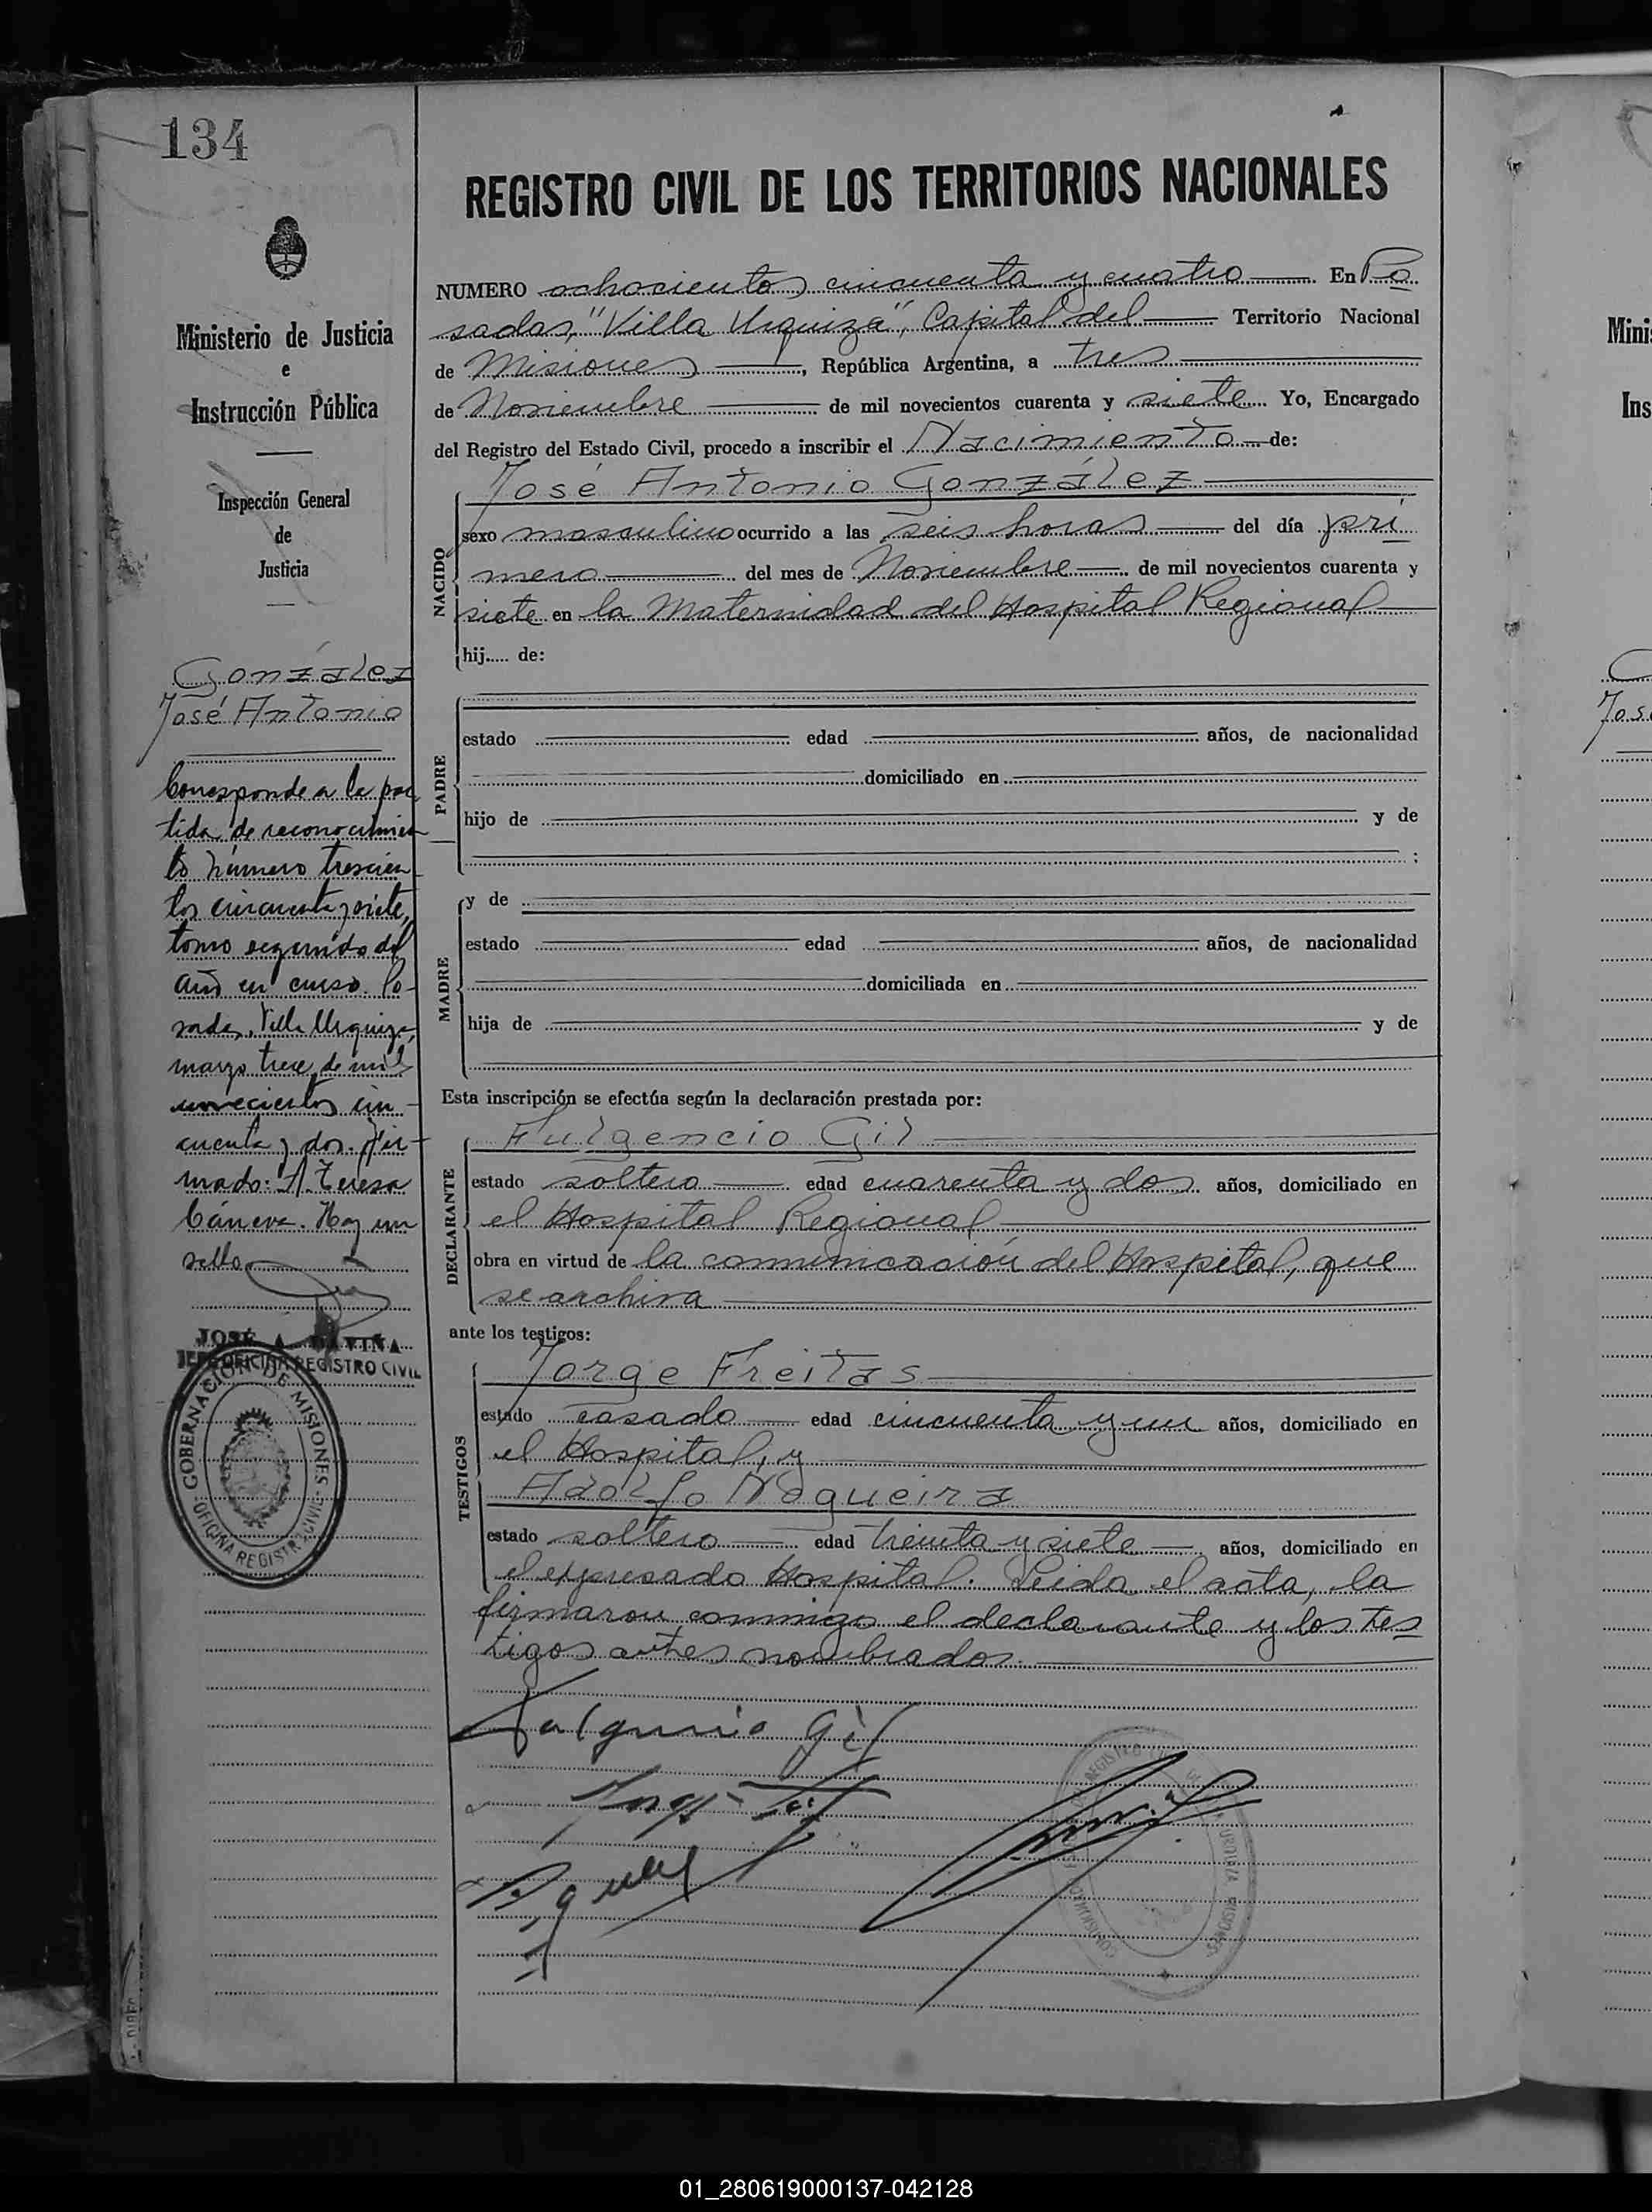 134
Ministerio de Justicia
e
Instrucción Pública
Inspección General
de
Justicia
González
José Antonio
Corresponde a la par
tida de reconocimien
to número trescien
tos cincuenta y siete,
tomo segundo del
año en curso. Po-
sadas, Villa Urquiza,
marzo trece de mil
novecientos cin-
cuenta y dos. Fir-
mado: A. Teresa
Cáneva. Hay un
sello
JOSÉ A.
JEFE OFICINA REGISTRO CIVIL
GOBERNACION DE MISIONES
OFICINA REGISTRO CIVIL
REGISTRO CIVIL DE LOS TERRITORIOS NACIONALES
NUMERO ochocientos cincuenta y cuatro En Po
sadas, "Villa Urquiza", Capital del Territorio Nacional
de Misiones, República Argentina, a tres
de Noviembre de mil novecientos cuarenta y siete Yo, Encargado
del Registro del Estado Civil, procedo a inscribir el Nacimiento de:
NACIDO
José Antonio González
sexo masculino ocurrido a las seis horas del día pri
mero del mes de Noviembre de mil novecientos cuarenta y
siete en la Maternidad del Hospital Regional
hij..... de:
PADRE
estado edad años, de nacionalidad
domiciliado en
hijo de y de
;
MADRE
y de
estado edad años, de nacionalidad
domiciliada en
hija de y de
Esta inscripción se efectúa según la declaración prestada por:
DECLARANTE
Fulgencio Gil
estado soltero edad cuarenta y dos años, domiciliado en
el Hospital Regional
obra en virtud de la comunicación del Hospital, que
se archiva
ante los testigos:
TESTIGOS
Jorge Freitas
estado casado edad cincuenta y un años, domiciliado en
el Hospital, y
Adolfo Nogueira
estado soltero edad treinta y siete años, domiciliado en
el expresado Hospital. Leida el acta, la
firmaron conmigo el declarante y los tes
tigos antes nombrados.
Fulgencio Gil
Mini
Ins
José
01_280619000137-042128